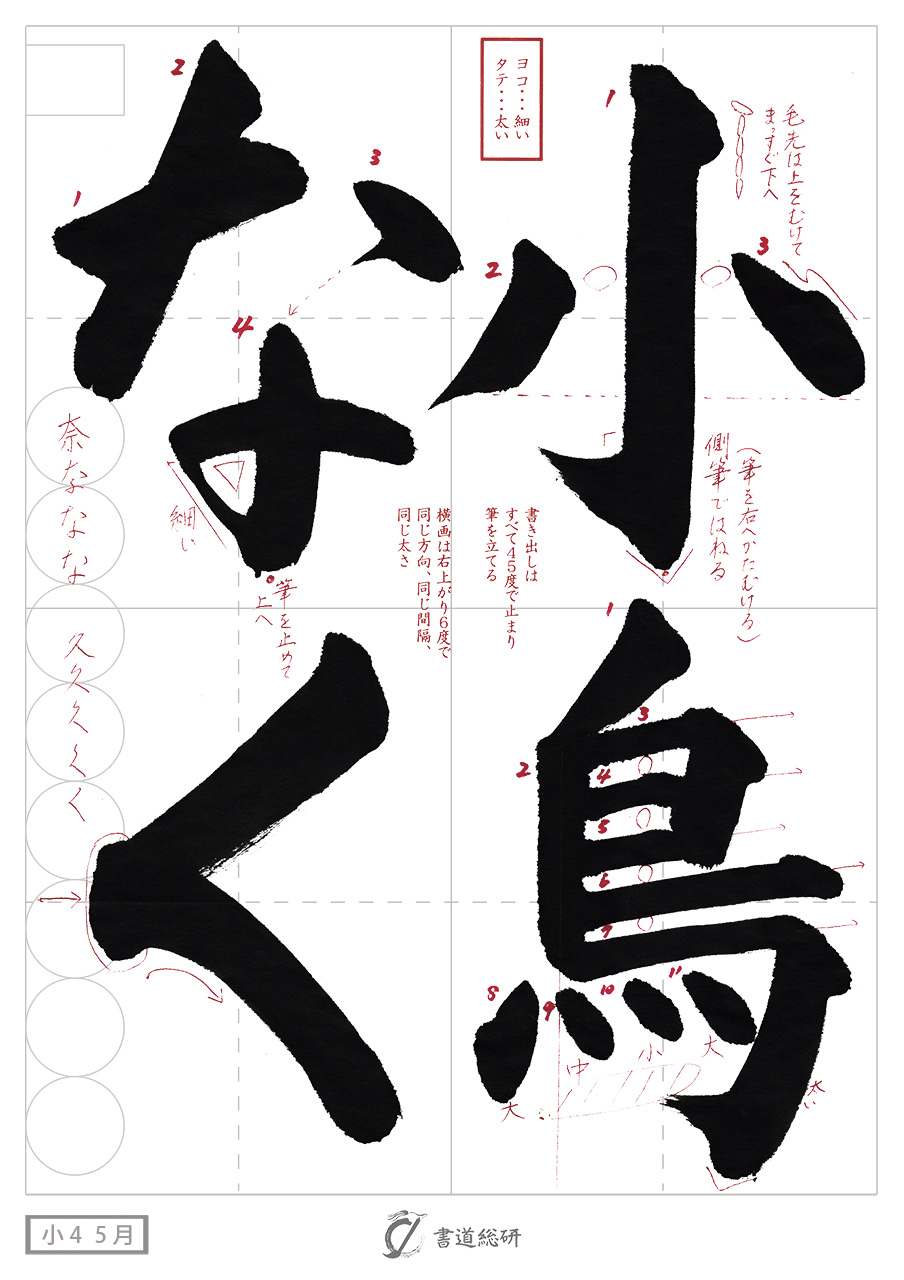 小鳥
なく
ヨコ・・・細い
タテ・・・太い
毛先は上をむけて
まっすぐ下へ
1
2
3
(筆を右へかたむける)
側筆ではねる
書き出しは
すべて45度で止まり
筆を立てる
横画は右上がり6度で
同じ方向、同じ間隔、
同じ太さ
1
2
3
4
5
6
7
8
9
10
11
大
中
小
大
太い
1
2
3
4
細い
筆を止めて
上へ
奈ななな
久久久くく
小4 5月
書道総研